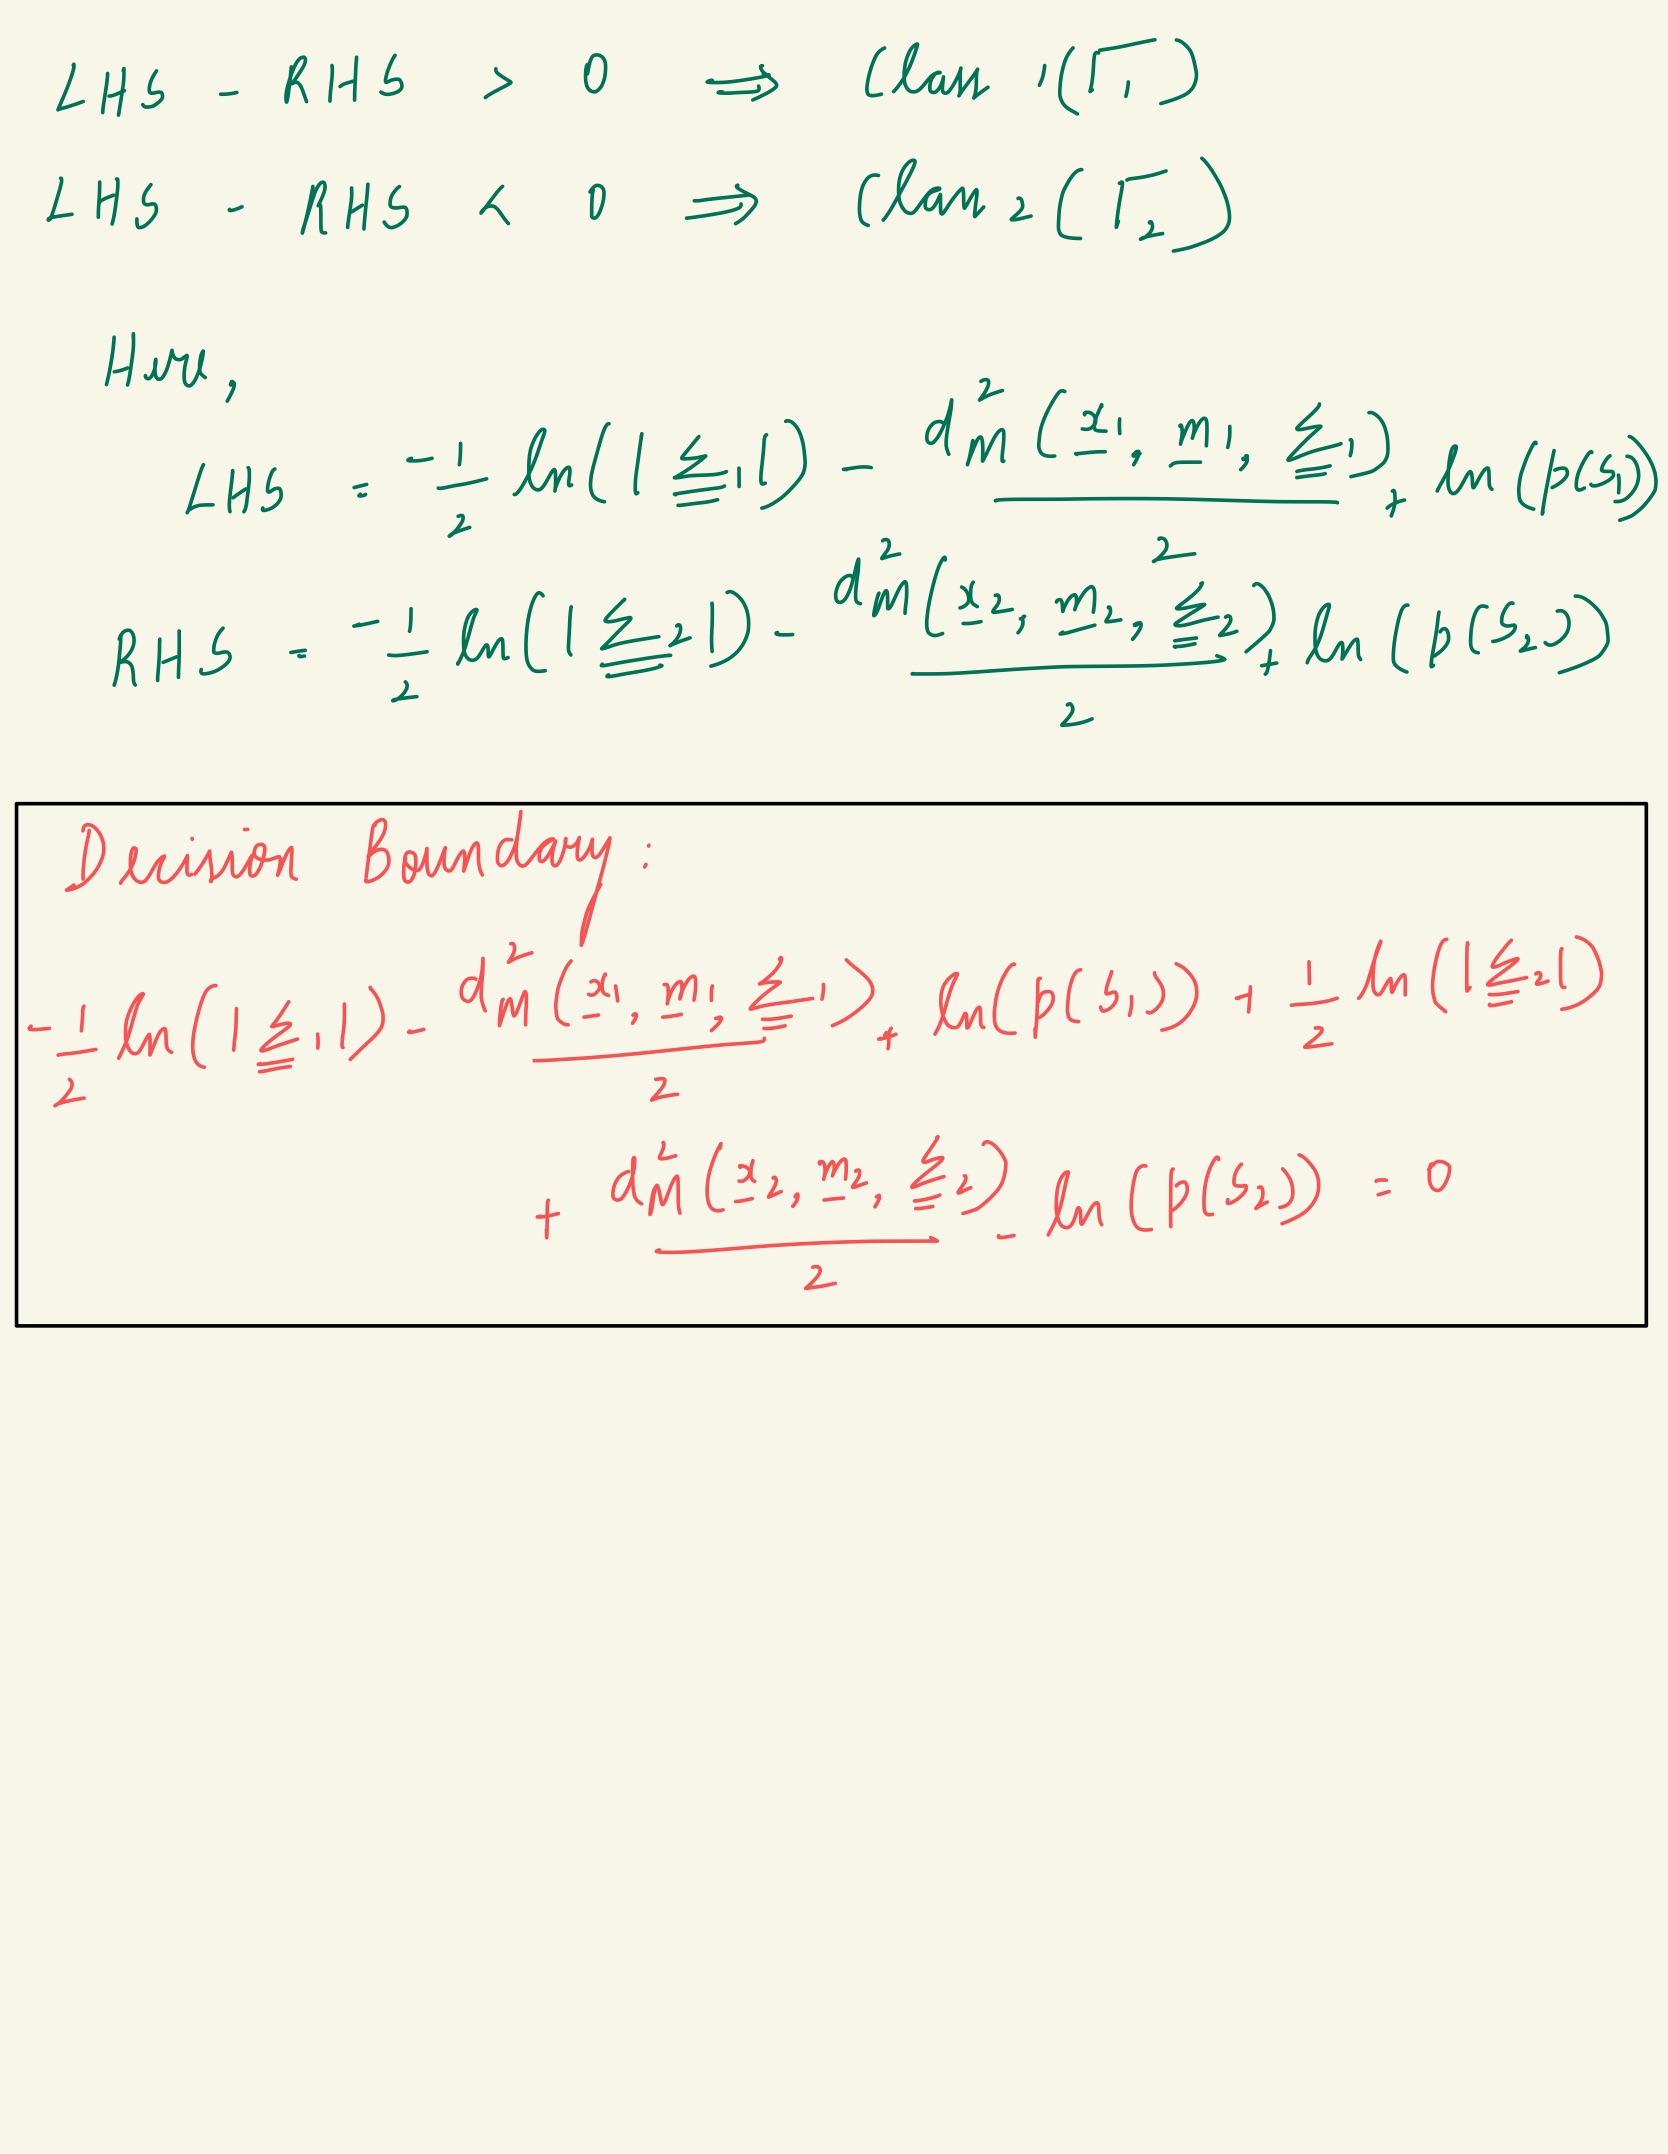 LHS - RHS > 0 ⇒ Class 1 (Γ₁)
LHS - RHS < 0 ⇒ Class 2 (Γ₂)
Here,
LHS = -1/2 ln(|Σ₁|) - d²_M(x₁, m₁, Σ₁)/2 + ln(p(S₁))
RHS = -1/2 ln(|Σ₂|) - d²_M(x₂, m₂, Σ₂)/2 + ln(p(S₂))
Decision Boundary:
-1/2 ln(|Σ₁|) - d²_M(x₁, m₁, Σ₁)/2 + ln(p(S₁)) + 1/2 ln(|Σ₂|)
+ d²_M(x₂, m₂, Σ₂)/2 - ln(p(S₂)) = 0